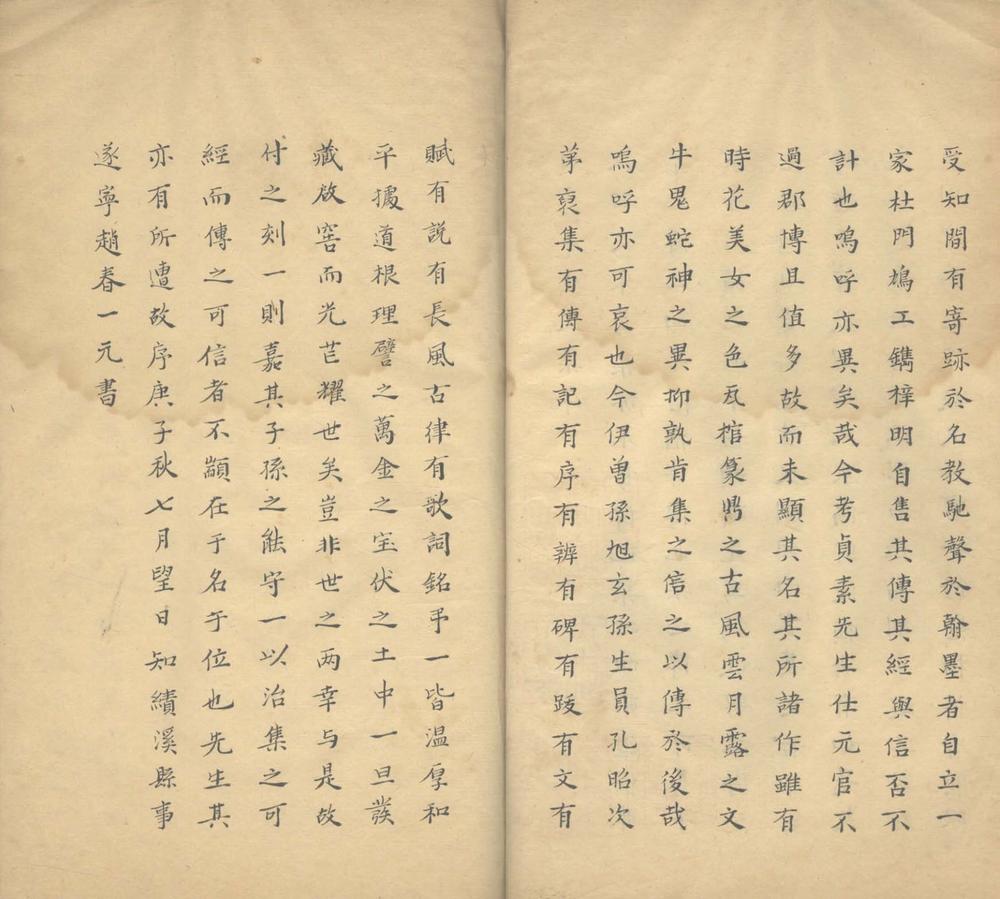 受知間有寄跡於名教馳聲於翰墨者自立一
家杜門鳩工鐫梓明自售其傳其經與信否不
計也嗚呼亦異矣哉今考貞素先生仕元官不
過郡博且值多故而未顯其名其所諸作雖有
時花美女之色瓦棺篆鼎之古風雲月露之文
牛鬼蛇神之異抑孰肯集之信之以傳於後哉
嗚呼亦可哀也今伊曽孫旭玄孫生員孔昭次
苐裒集有傳有記有序有辨有碑有跋有文有
賦有説有長風古律有歌詞銘予一皆温厚和
平據道根理譬之萬金之宝伏之土中一旦發
藏啟窖而光芒耀世矣豈非世之两幸与是故
付之刻一則嘉其子孫之能守一以治集之可
經而傳之可信者不顓在于名于位也先生其
亦有所遭故序庚子秋七月望日知績溪縣事
遂寧趙春一元書